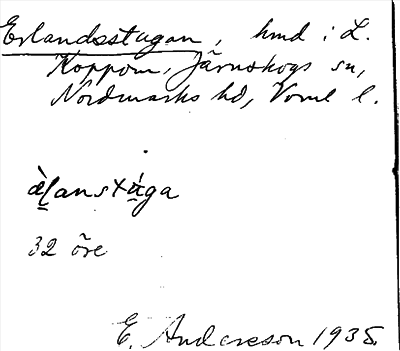 Erlandsstugan, hmd i L.
Koppom, Järnskogs sn,
Nordmarks hd, Vrml l.
32 öre
E. Andersson 1935.